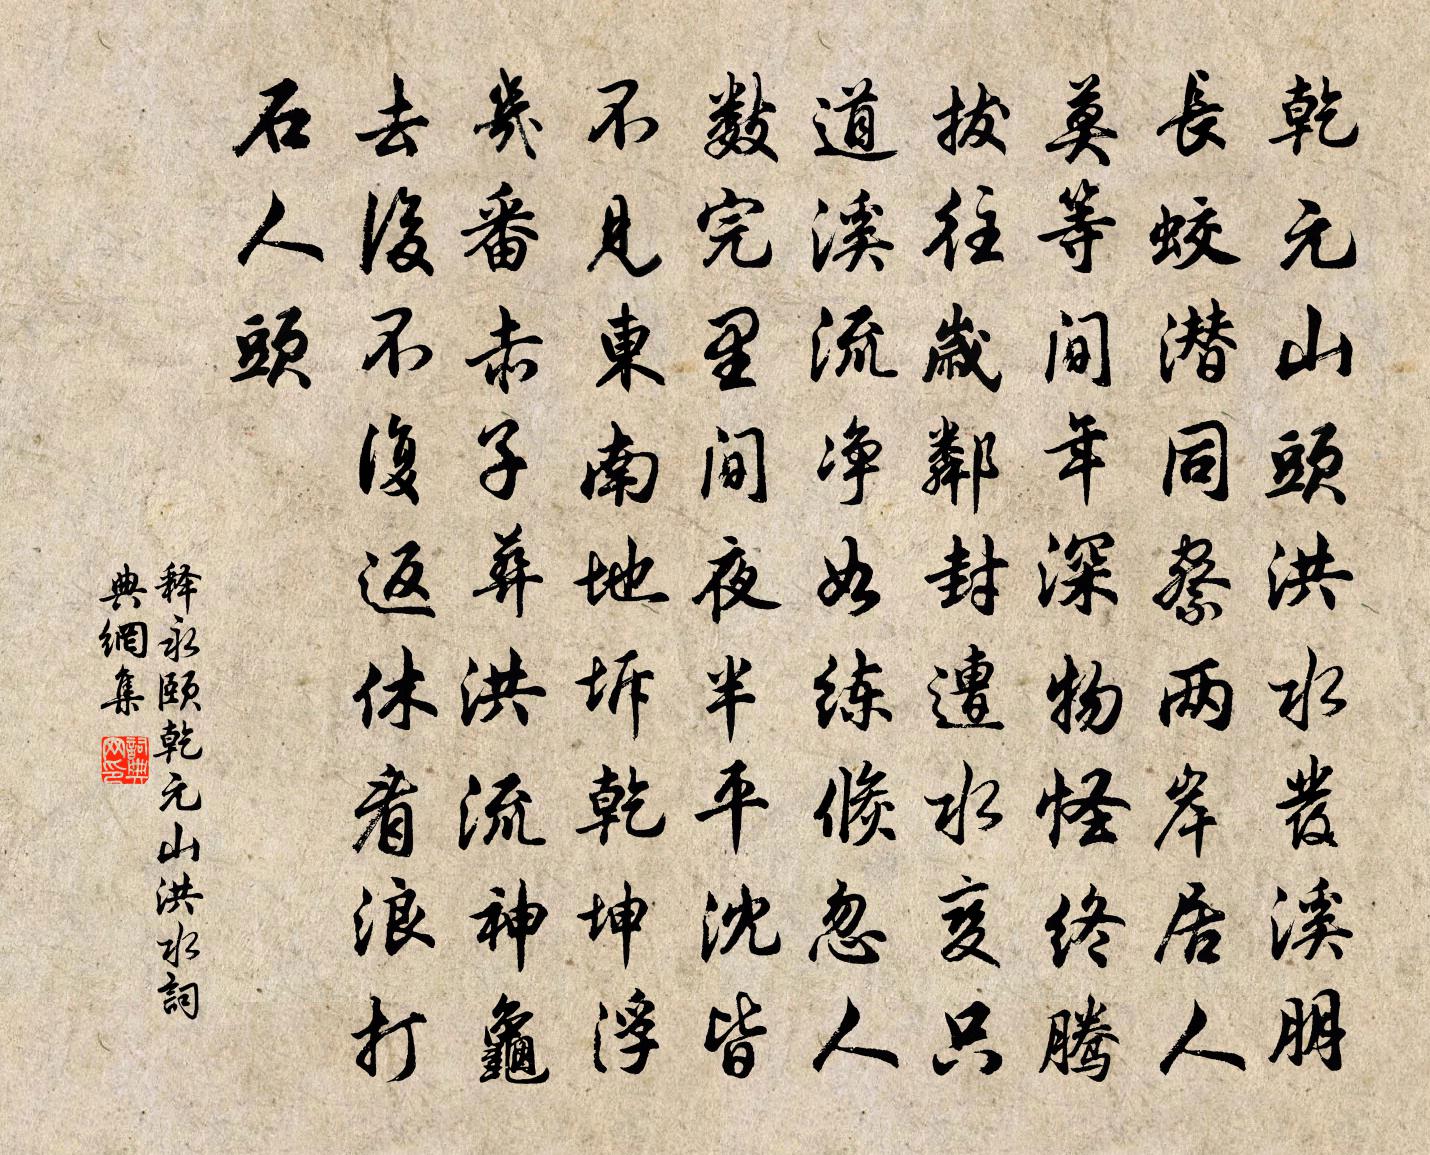 乾元山頭洪水發溪朋
長蛟潛同祭两岸居人
莫等间年深物怪终腾
拔往歲鄰封遭水變只
道溪流净如练倏忽人
數完里间夜半平沈皆
不見東南地坼乾坤浮
幾番赤子葬洪流神龜
去後不復返休看浪打
石人頭
释永颐乾元山洪水詞
典網集
詞典網印